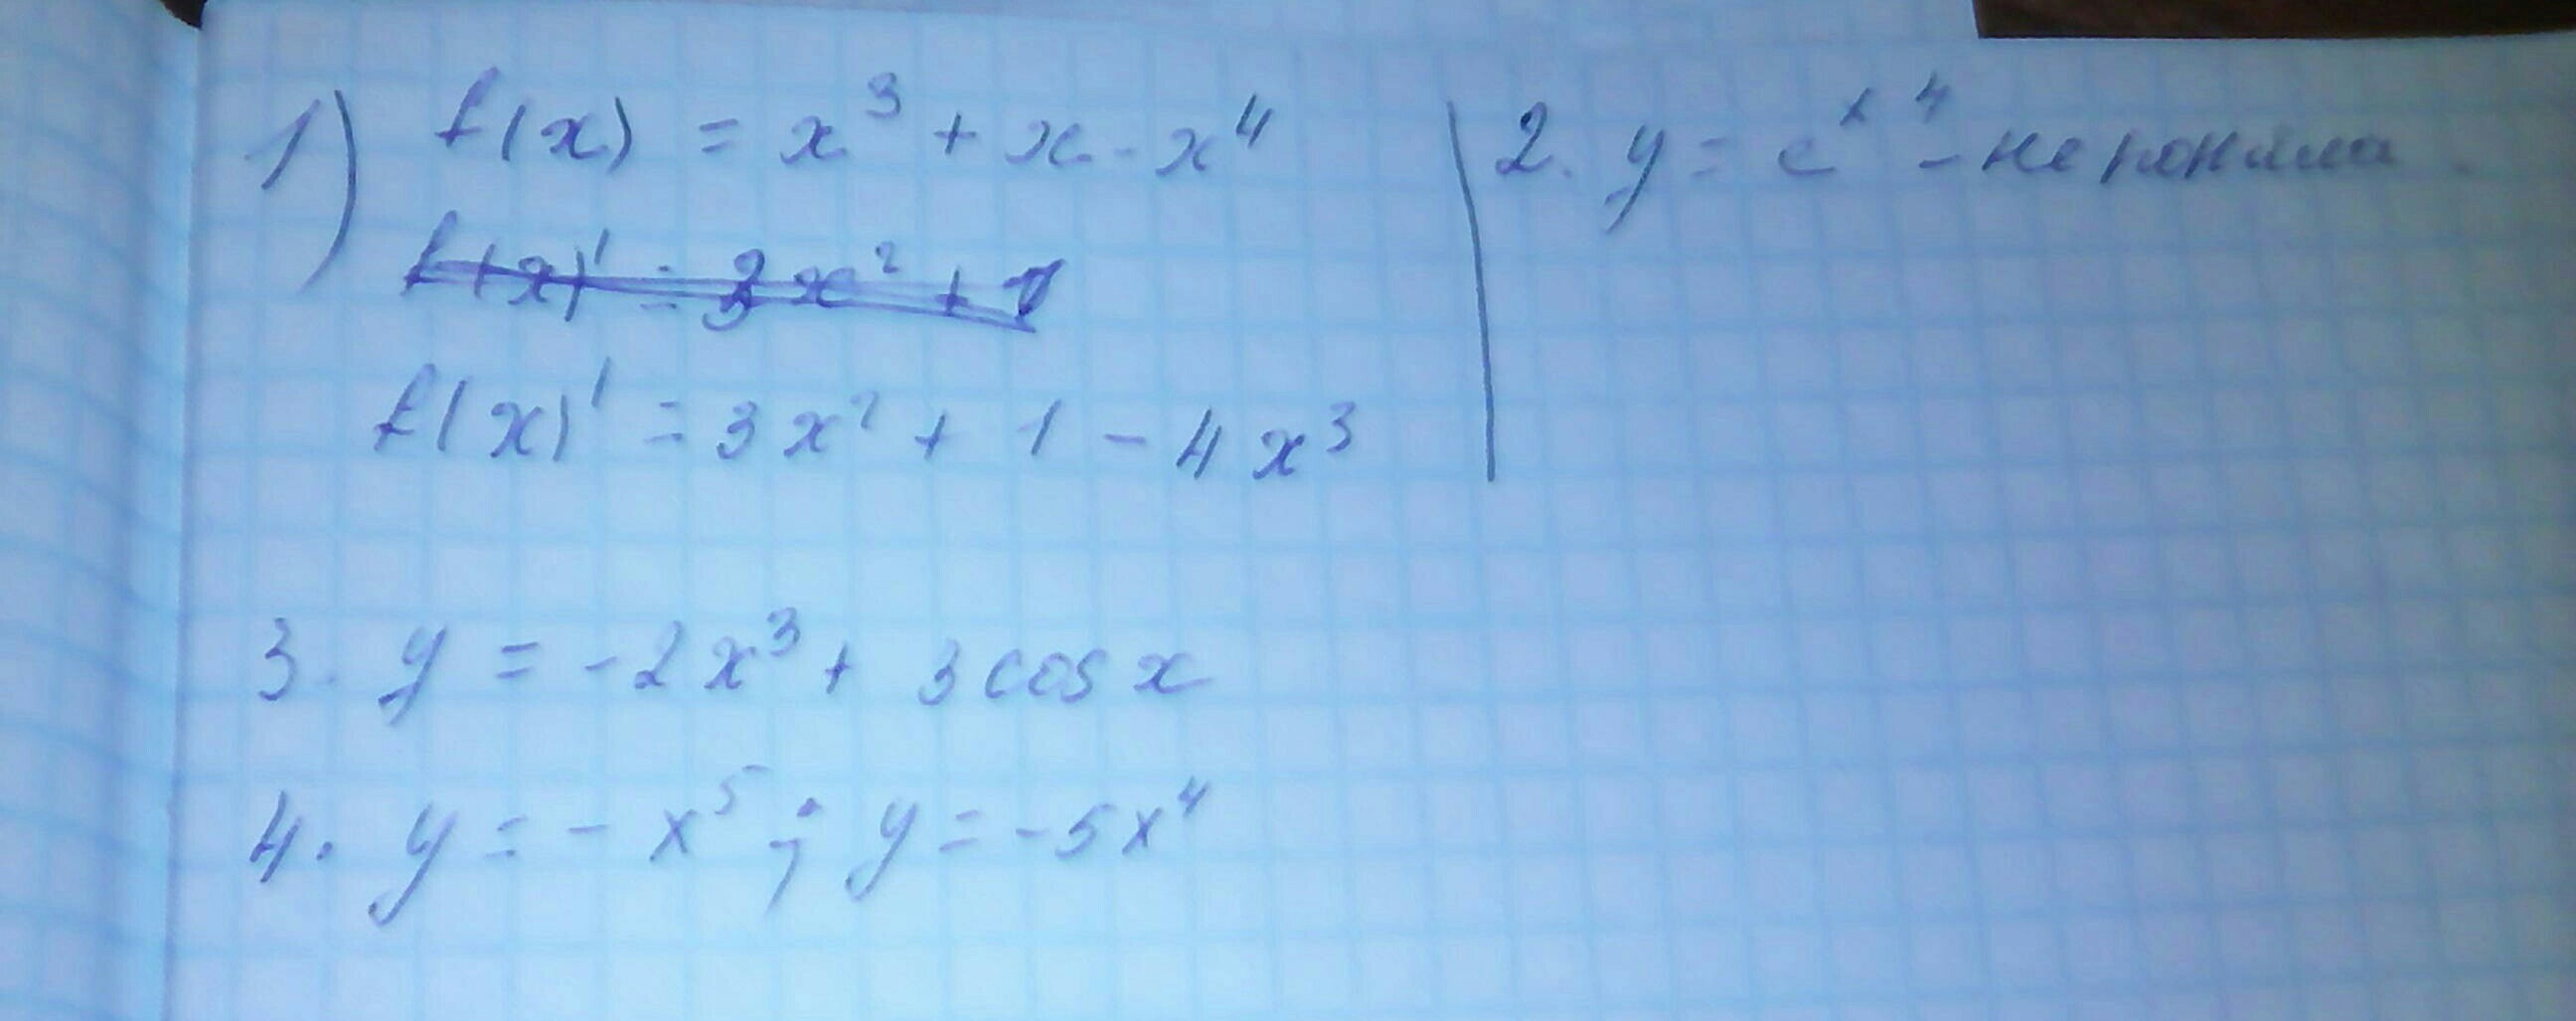 1) f(x) = x³ + x - x⁴
f(x)' = 3x² + 1
f(x)' = 3x² + 1 - 4x³
2. y = e^x^4 - не поняла.
3. y = -2x³ + 3 cos x
4. y = - x⁵ ; y = -5x⁴